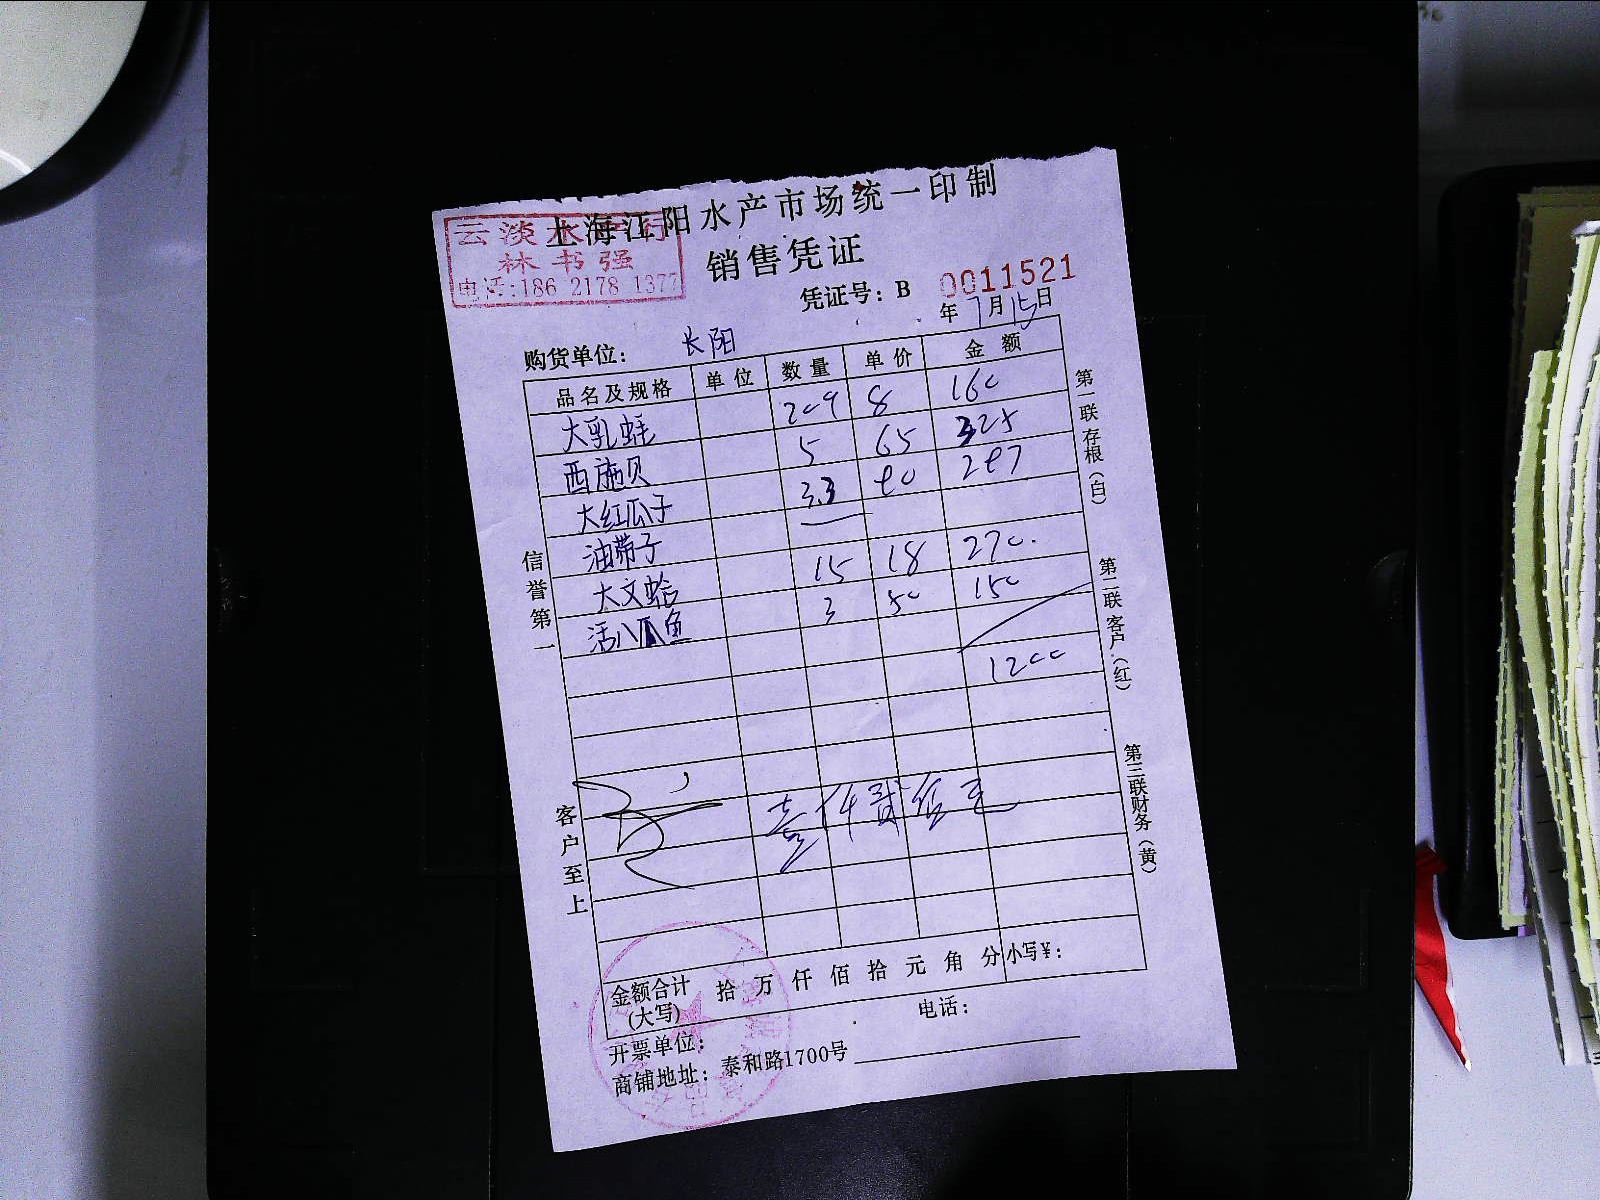 上海江阳水产市场统一印制
云淡水产行
林书强
电话:186 2178 1377
销售凭证
凭证号：B 0011521
年 7月15日
购货单位： 长阳
品名及规格 单位 数量 单价 金额
大乳蚝 8 160
西施贝 5 65 325
大红瓜子 3.3
油带子
大文蛤 15 18 270.
活八爪鱼 3 50 150
1200
壹仟贰佰元
信誉第一
客户至上
第一联存根(白)
第二联客户(红)
第三联财务(黄)
金额合计(大写) 拾 万 仟 佰 拾 元 角 分 小写¥：
开票单位： 电话：
商铺地址： 泰和路1700号